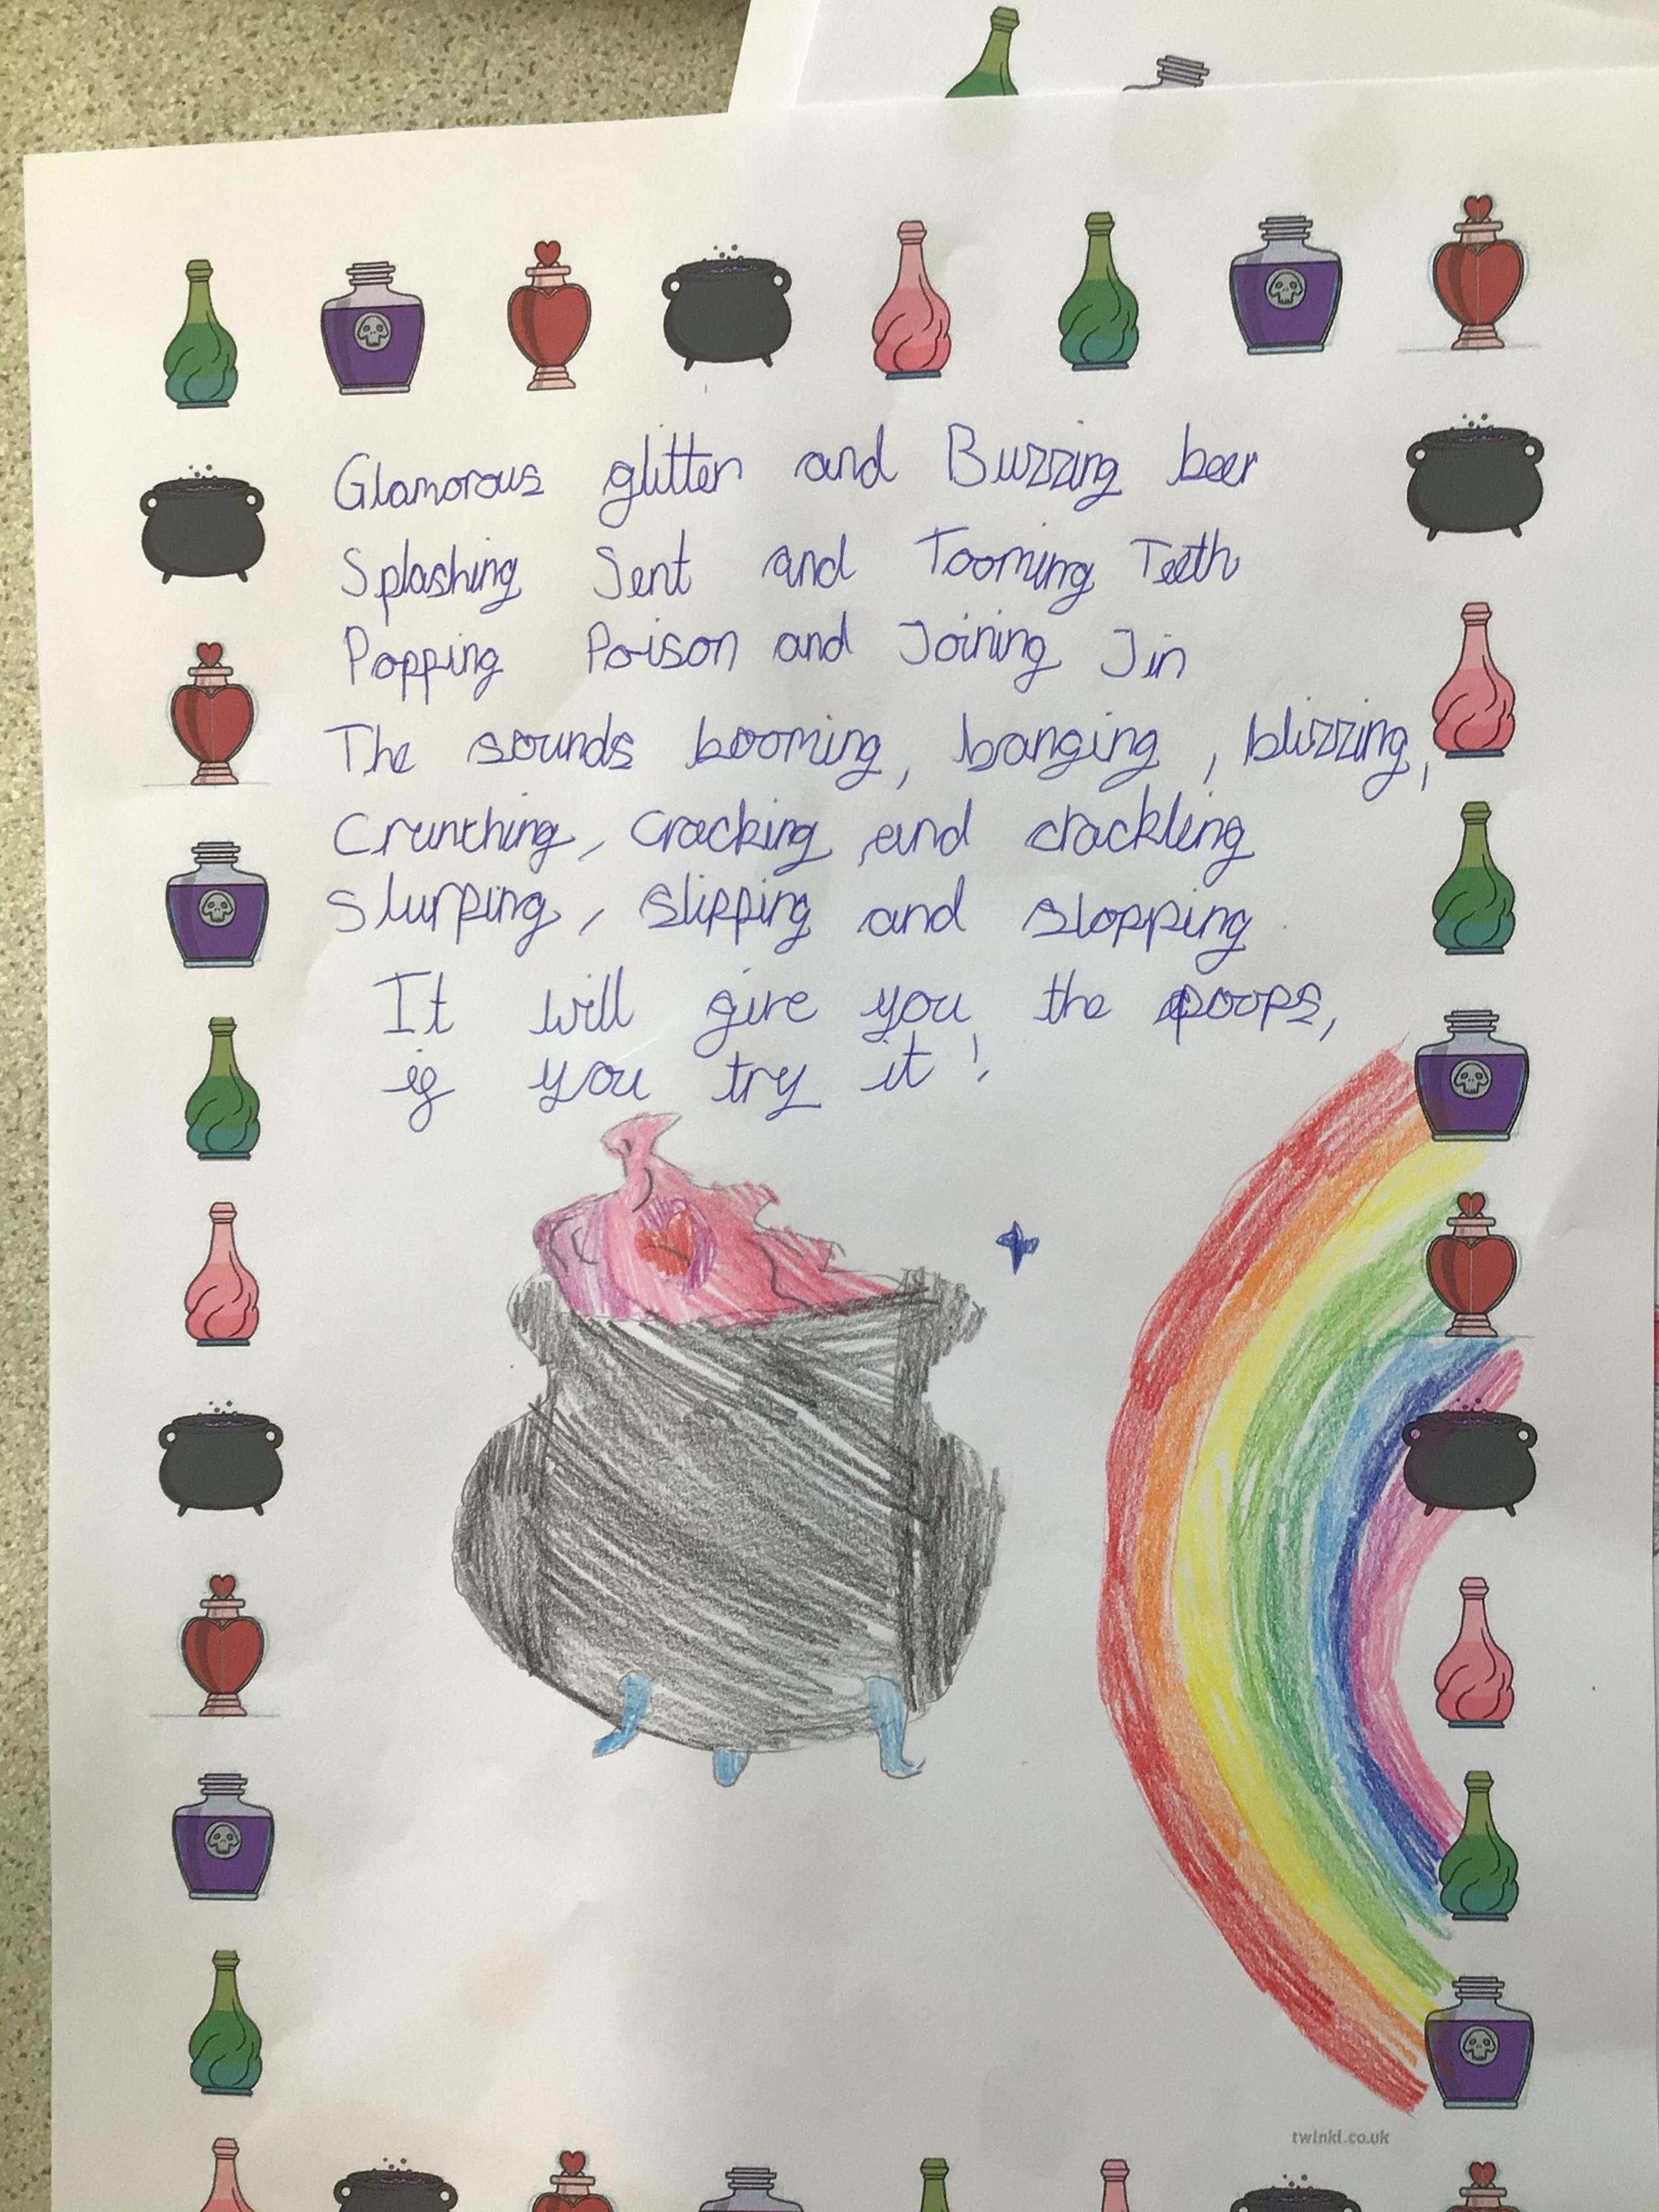 Glamorous glitter and Buzzing beer
Splashing Sent and Tooming Teeth
Popping Poison and Joining Jin
The sounds booming, banging, blizzing,
Crunching, cracking, and crackling
Slurping, slipping and slopping
It will give you the poops,
if you try it!
twinkl.co.uk